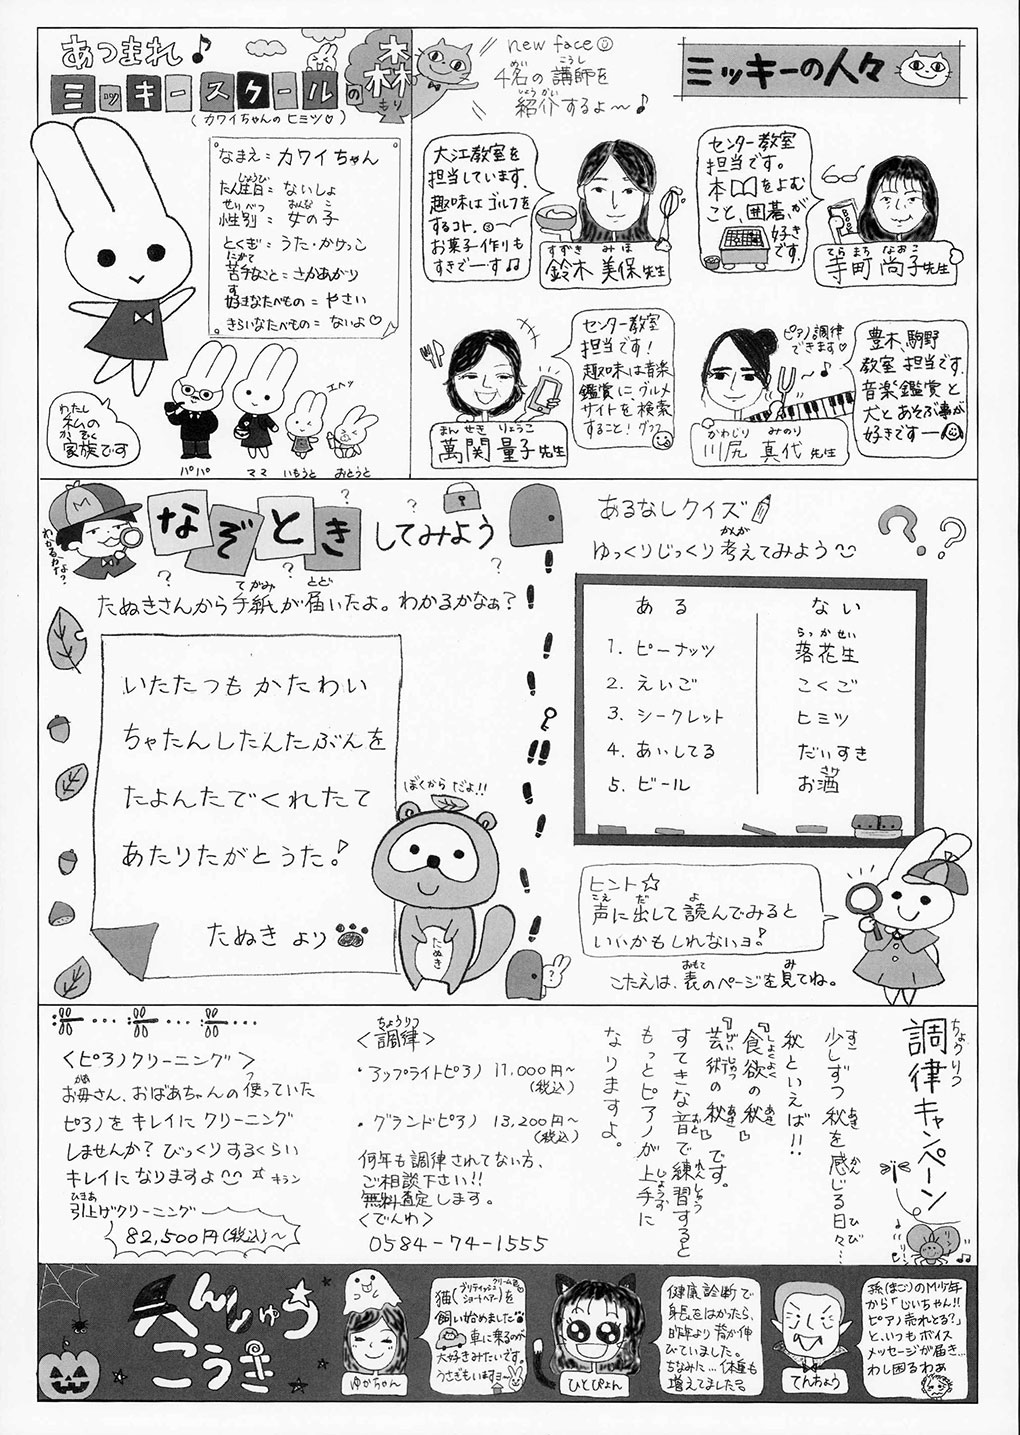 あつまれ♪
ミッキースクールの森
もり
(カワイちゃんのヒミツ♡)
なまえ＝カワイちゃん
たん生日＝ないしょ
じょうび
性別＝女の子
せいべつ おんな こ
とくぎ＝うた・かけっこ
苦手なこと＝さかあがり
にがて
好きなたべもの＝やさい
す
きらいなたべもの＝ないよ♡
わたし
私の
かぞく
家族です
パパ
ママ
いもうと
おとうと
エヘッ
new face
4名の講師を
めい こうし
紹介するよ〜♪
しょうかい
ミッキーの人々
大江教室を
担当しています。
趣味はゴルフを
するコト。
お菓子作りも
すきでーす♫
すずき みほ
鈴木 美保先生
センター教室
担当です。
本をよむ
こと、囲碁が
好き
です。
てらまち なおこ
寺町 尚子先生
センター教室
担当です!
趣味は音楽
鑑賞に、グルメ
サイトを検索
すること!グフフ
まんせき りょうこ
萬関 量子先生
ピアノ調律
できます♡
豊木、駒野
教室担当です。
音楽鑑賞と
犬とあそぶ事が
好きですー
かわじり みのり
川尻 真代先生
なぞときしてみよう
わかるかなぁ?
たぬきさんから手紙が届いたよ。わかるかなぁ?
てがみ とど
いたたつもかたわい
ちゃたんしたんたぶんを
たよんたでくれたて
あたりたがとうた!
たぬき より
ぼくからだよ!!
たぬき
あるなしクイズ
ゆっくりじっくり考えてみよう
かんが
ある ない
1. ピーナッツ 落花生
らっかせい
2. えいご こくご
3. シークレット ヒミツ
4. あいしてる だいすき
5. ビール お酒
さけ
ヒント☆
こえ だ よ
声に出して読んでみると
いいかもしれないヨ!
こたえは、表のページを見てね。
おもて み
ちょうりつ
調律キャンペーン
少しずつ秋を感じる日々…
すこ あき かん ひび
秋といえば!!
『食欲の秋』
しょくよく あき
『芸術の秋』です。
げいじゅつ あき
すてきな音で練習すると
おと れんしゅう
もっとピアノが上手に
じょうず
なりますよ。
リーン
リーン
<ピアノクリーニング>
お母さん、おばあちゃんの使っていた
かあ つか
ピアノをキレイにクリーニング
しませんか?びっくりするくらい
キレイになりますよ☆キラン
ひきあ
引上げクリーニング
82,500円(税込)〜
ちょうりつ
<調律>
・アップライトピアノ 11,000円〜
(税込)
・グランドピアノ 13,200円〜
(税込)
何年も調律されてない方、
ご相談下さい!!
無料査定します。
<でんわ>
0584-74-1555
へんしゅう
こうき
ゆかちゃん
猫(ブリティッシュショートヘアー)を
クリーム色
飼い始めました
車に乗るのが
大好きみたいです。
うさぎもいますヨ〜
ひとぴょん
健康診断で
身長をはかったら、
昨年より背が伸
びていました。
ちなみに…体重も
増えてました
てんちょう
孫(まご)のM少年
から「じいちゃん!!
ピアノ売れとる?」
と、いつもボイス
メッセージが届き…
わし困るわぁ